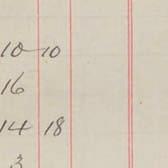 10 10
16
14 18
3